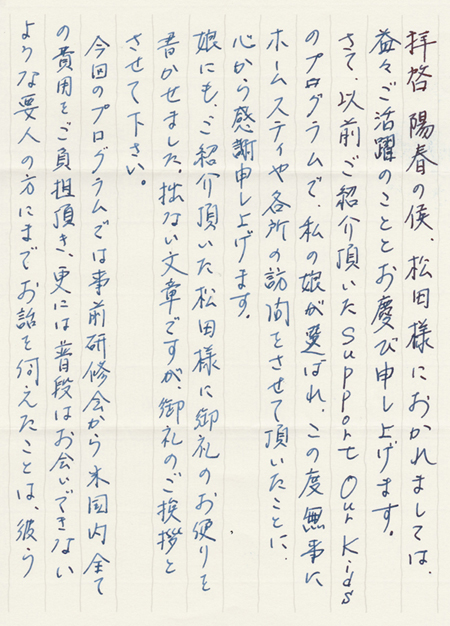 拝啓 陽春の候、松田様におかれましては、
益々ご活躍のこととお慶び申し上げます。
さて、以前ご紹介頂いたSupport Our Kids
のプログラムで、私の娘が選ばれ、この度無事に
ホームスティや各所の訪問をさせて頂いたことに、
心から感謝申し上げます。
娘にも、ご紹介頂いた松田様に御礼のお便りを
書かせました。拙ない文章ですが、御礼のご挨拶と
させて下さい。
今回のプログラムでは事前研修会から米国内全て
の費用をご負担頂き、更には普段はお会いできない
ような要人の方にまでお話を伺えたことは、彼ら